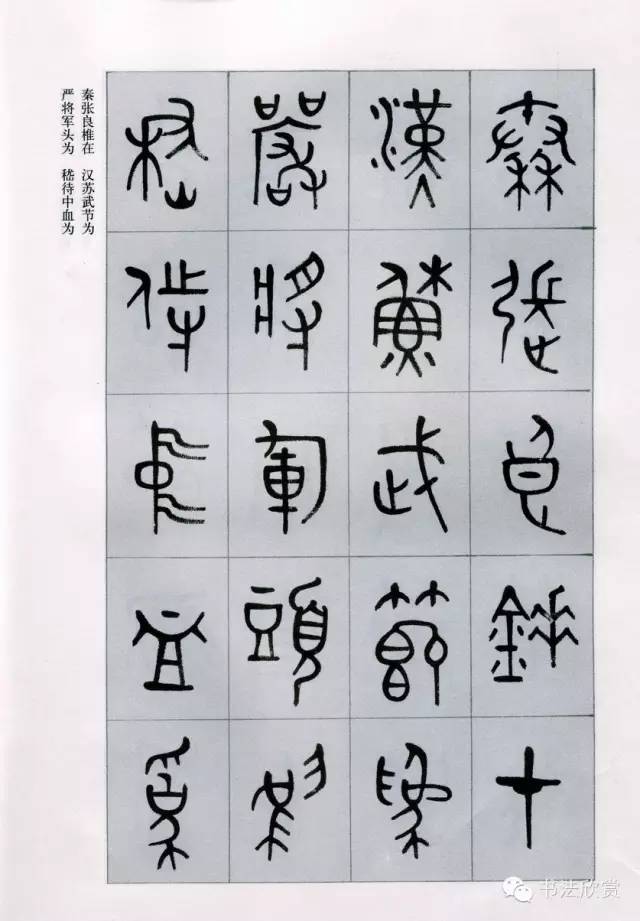 秦張良錘在
漢蘇武節為
嚴將軍頭為
嵇侍中血為
秦张良椎在 汉苏武节为
严将军头为 嵇待中血为
书法欣赏